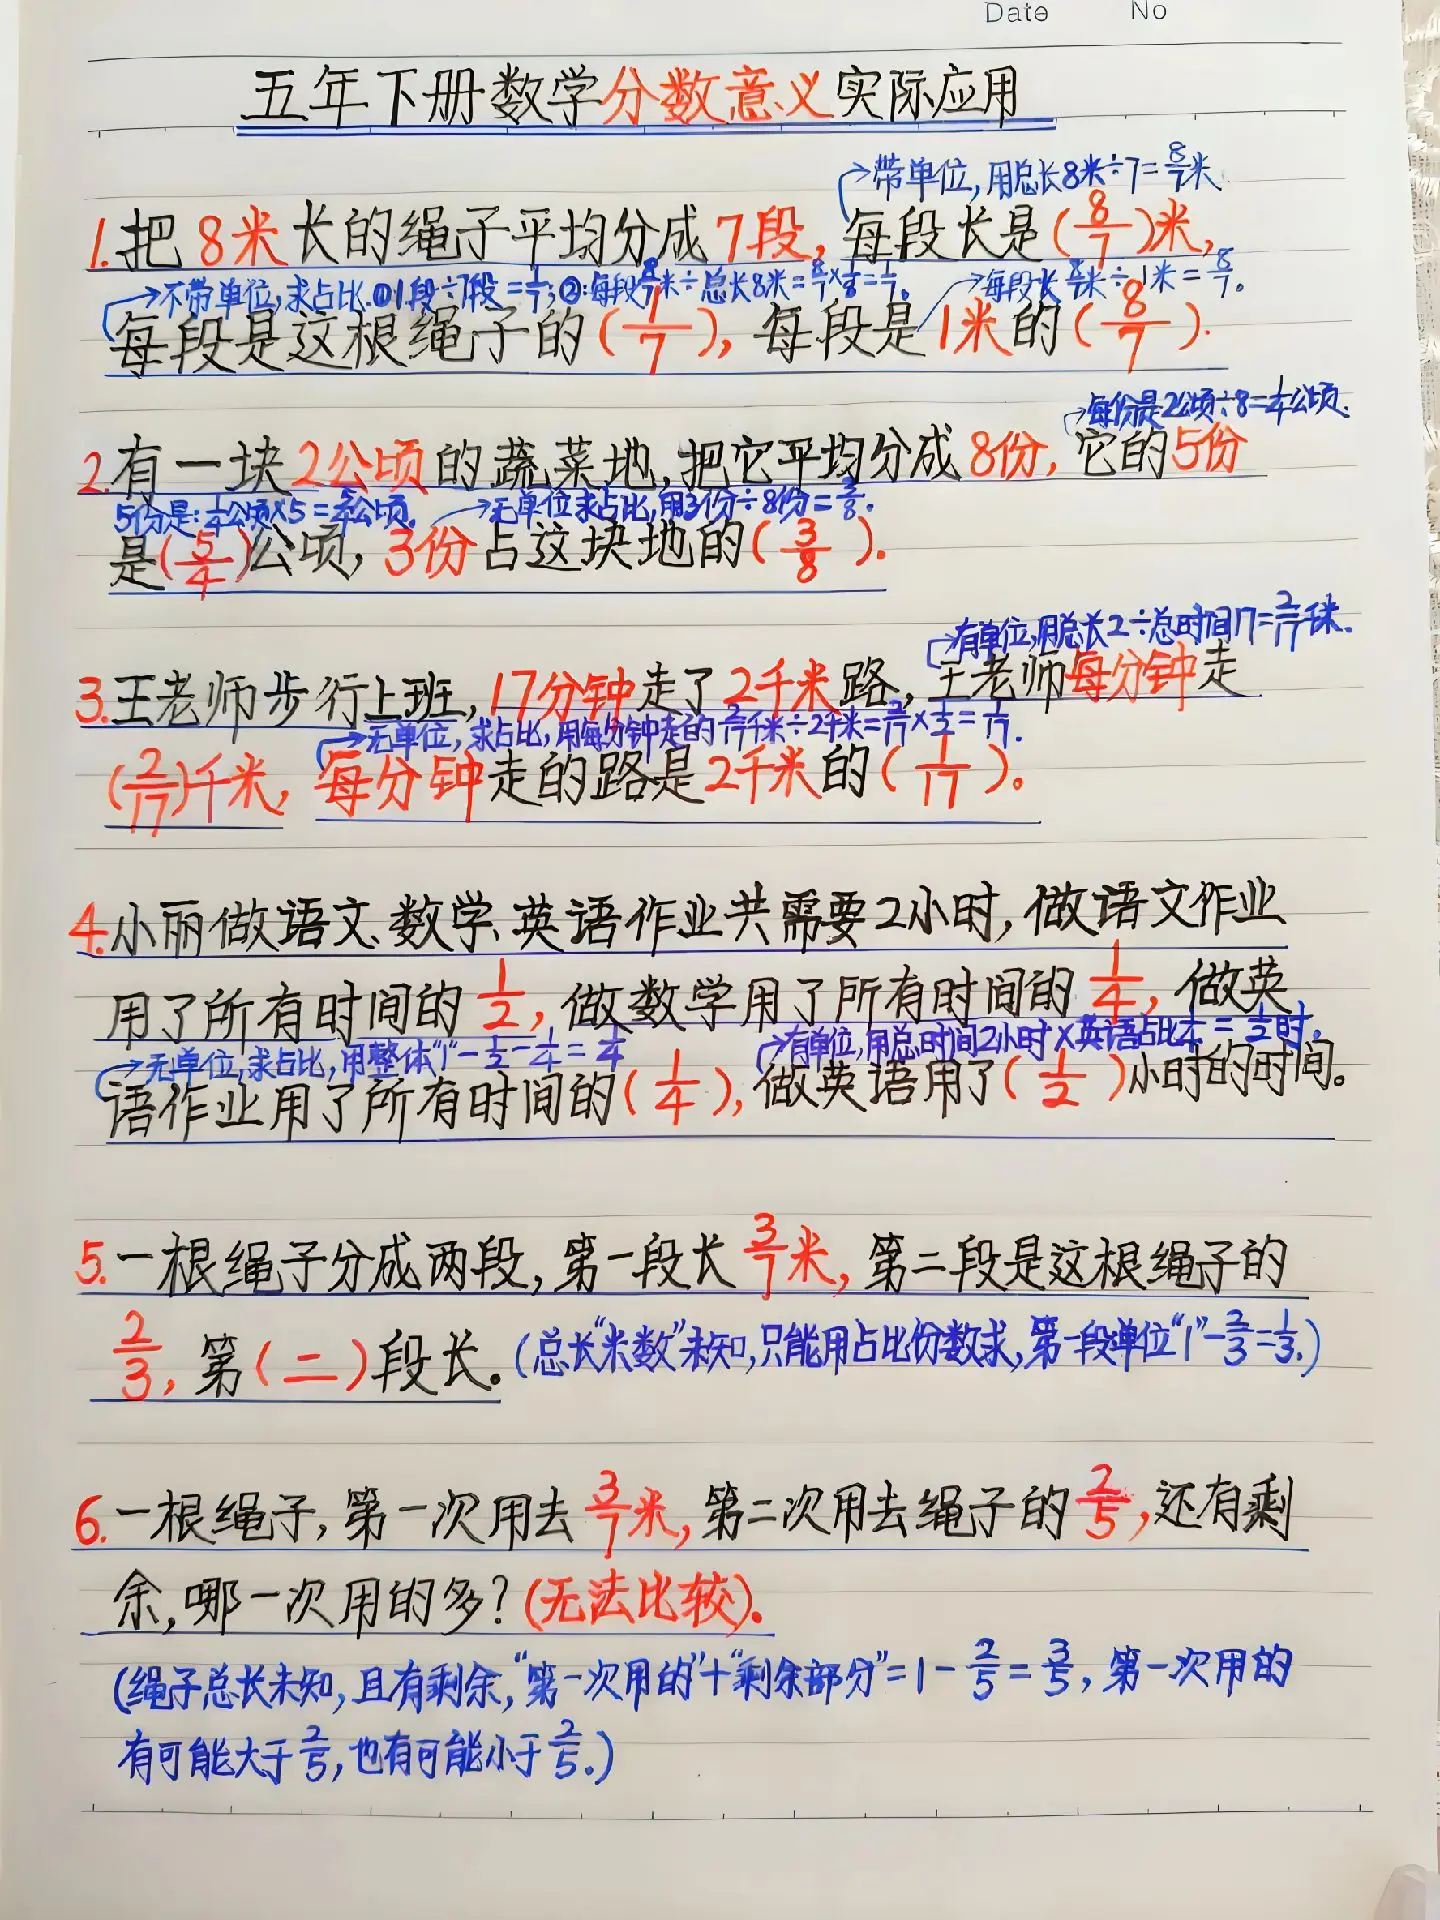 Date No
五年下册数学分数意义实际应用
→带单位,用总长8米÷7=8/7米
1.把8米长的绳子平均分成7段,每段长是(8/7)米,
→不带单位,求占比.①1段÷7段=1/7;②:每段8/7米÷总长8米=8/7×1/8=1/7。 →每段长8/7米÷1米=8/7。
每段是这根绳子的(1/7),每段是1米的(8/7).
→每份是2公顷÷8=1/4公顷.
2.有一块2公顷的蔬菜地,把它平均分成8份,它的5份
5份是:1/4公顷×5=5/4公顷. →无单位求占比,用3份÷8份=3/8.
是(5/4)公顷,3份占这块地的(3/8).
→有单位,用总长2÷总时间17=2/17千米.
3.王老师步行上班,17分钟走了2千米路,王老师每分钟走
→无单位,求占比,用每分钟走的2/17千米÷2千米=2/17×1/2=1/17.
(2/17)千米,每分钟走的路是2千米的(1/17)。
4.小丽做语文、数学、英语作业共需要2小时,做语文作业
用了所有时间的1/2,做数学用了所有时间的1/4,做英
→无单位,求占比,用整体"1"-1/2-1/4=1/4 →有单位,用总时间2小时×英语占比1/4=1/2时.
语作业用了所有时间的(1/4),做英语用了(1/2)小时的时间。
5.一根绳子分成两段,第一段长3/7米,第二段是这根绳子的
2/3,第(二)段长.(总长"米数"未知,只能用占比份数求,第一段单位"1"-2/3=1/3.)
6.一根绳子,第一次用去3/7米,第二次用去绳子的2/5,还有剩
余,哪一次用的多?(无法比较).
(绳子总长未知,且有剩余,"第一次用的"+"剩余部分"=1-2/5=3/5,第一次用的
有可能大于2/5,也有可能小于2/5.)